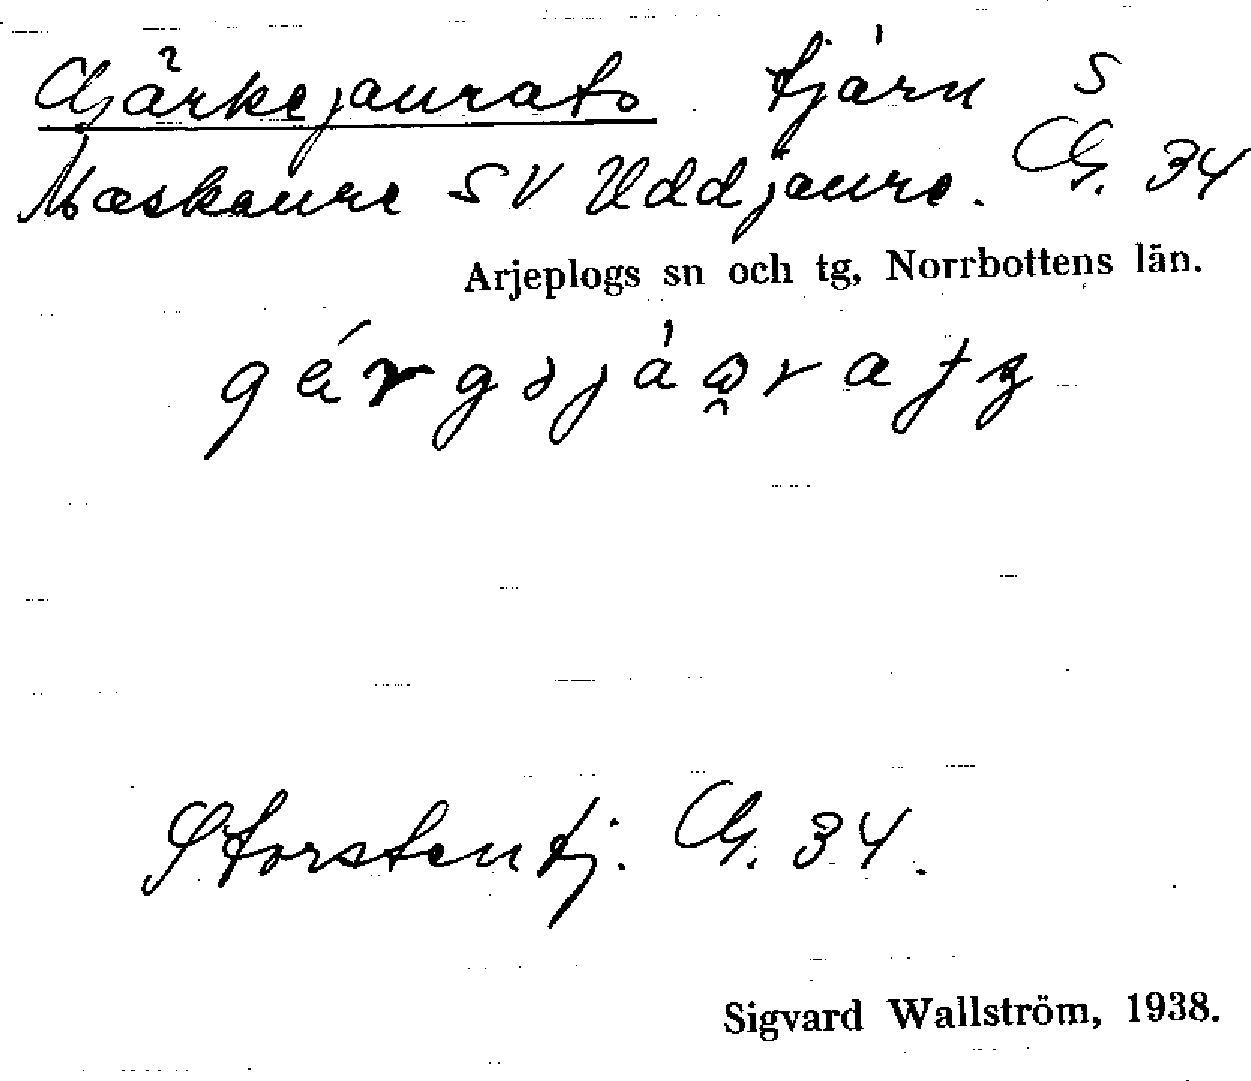 Gärkejaurats tjärn S
Maskaure SV Uddjaure. G. 34
Arjeplogs sn och tg, Norrbottens län.
Storstentj. G. 34.
Sigvard Wallström, 1938.